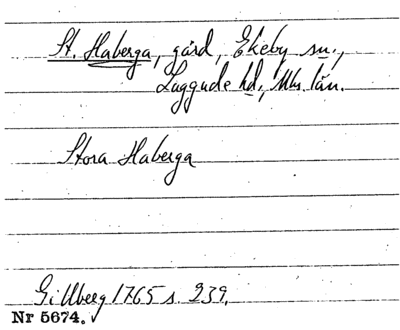 St. Haberga, gård, Ekeby sn.,
Luggude hd., Mhs. län.
Stora Haberga
Gillberg 1765 s. 239.
Nr 5674.